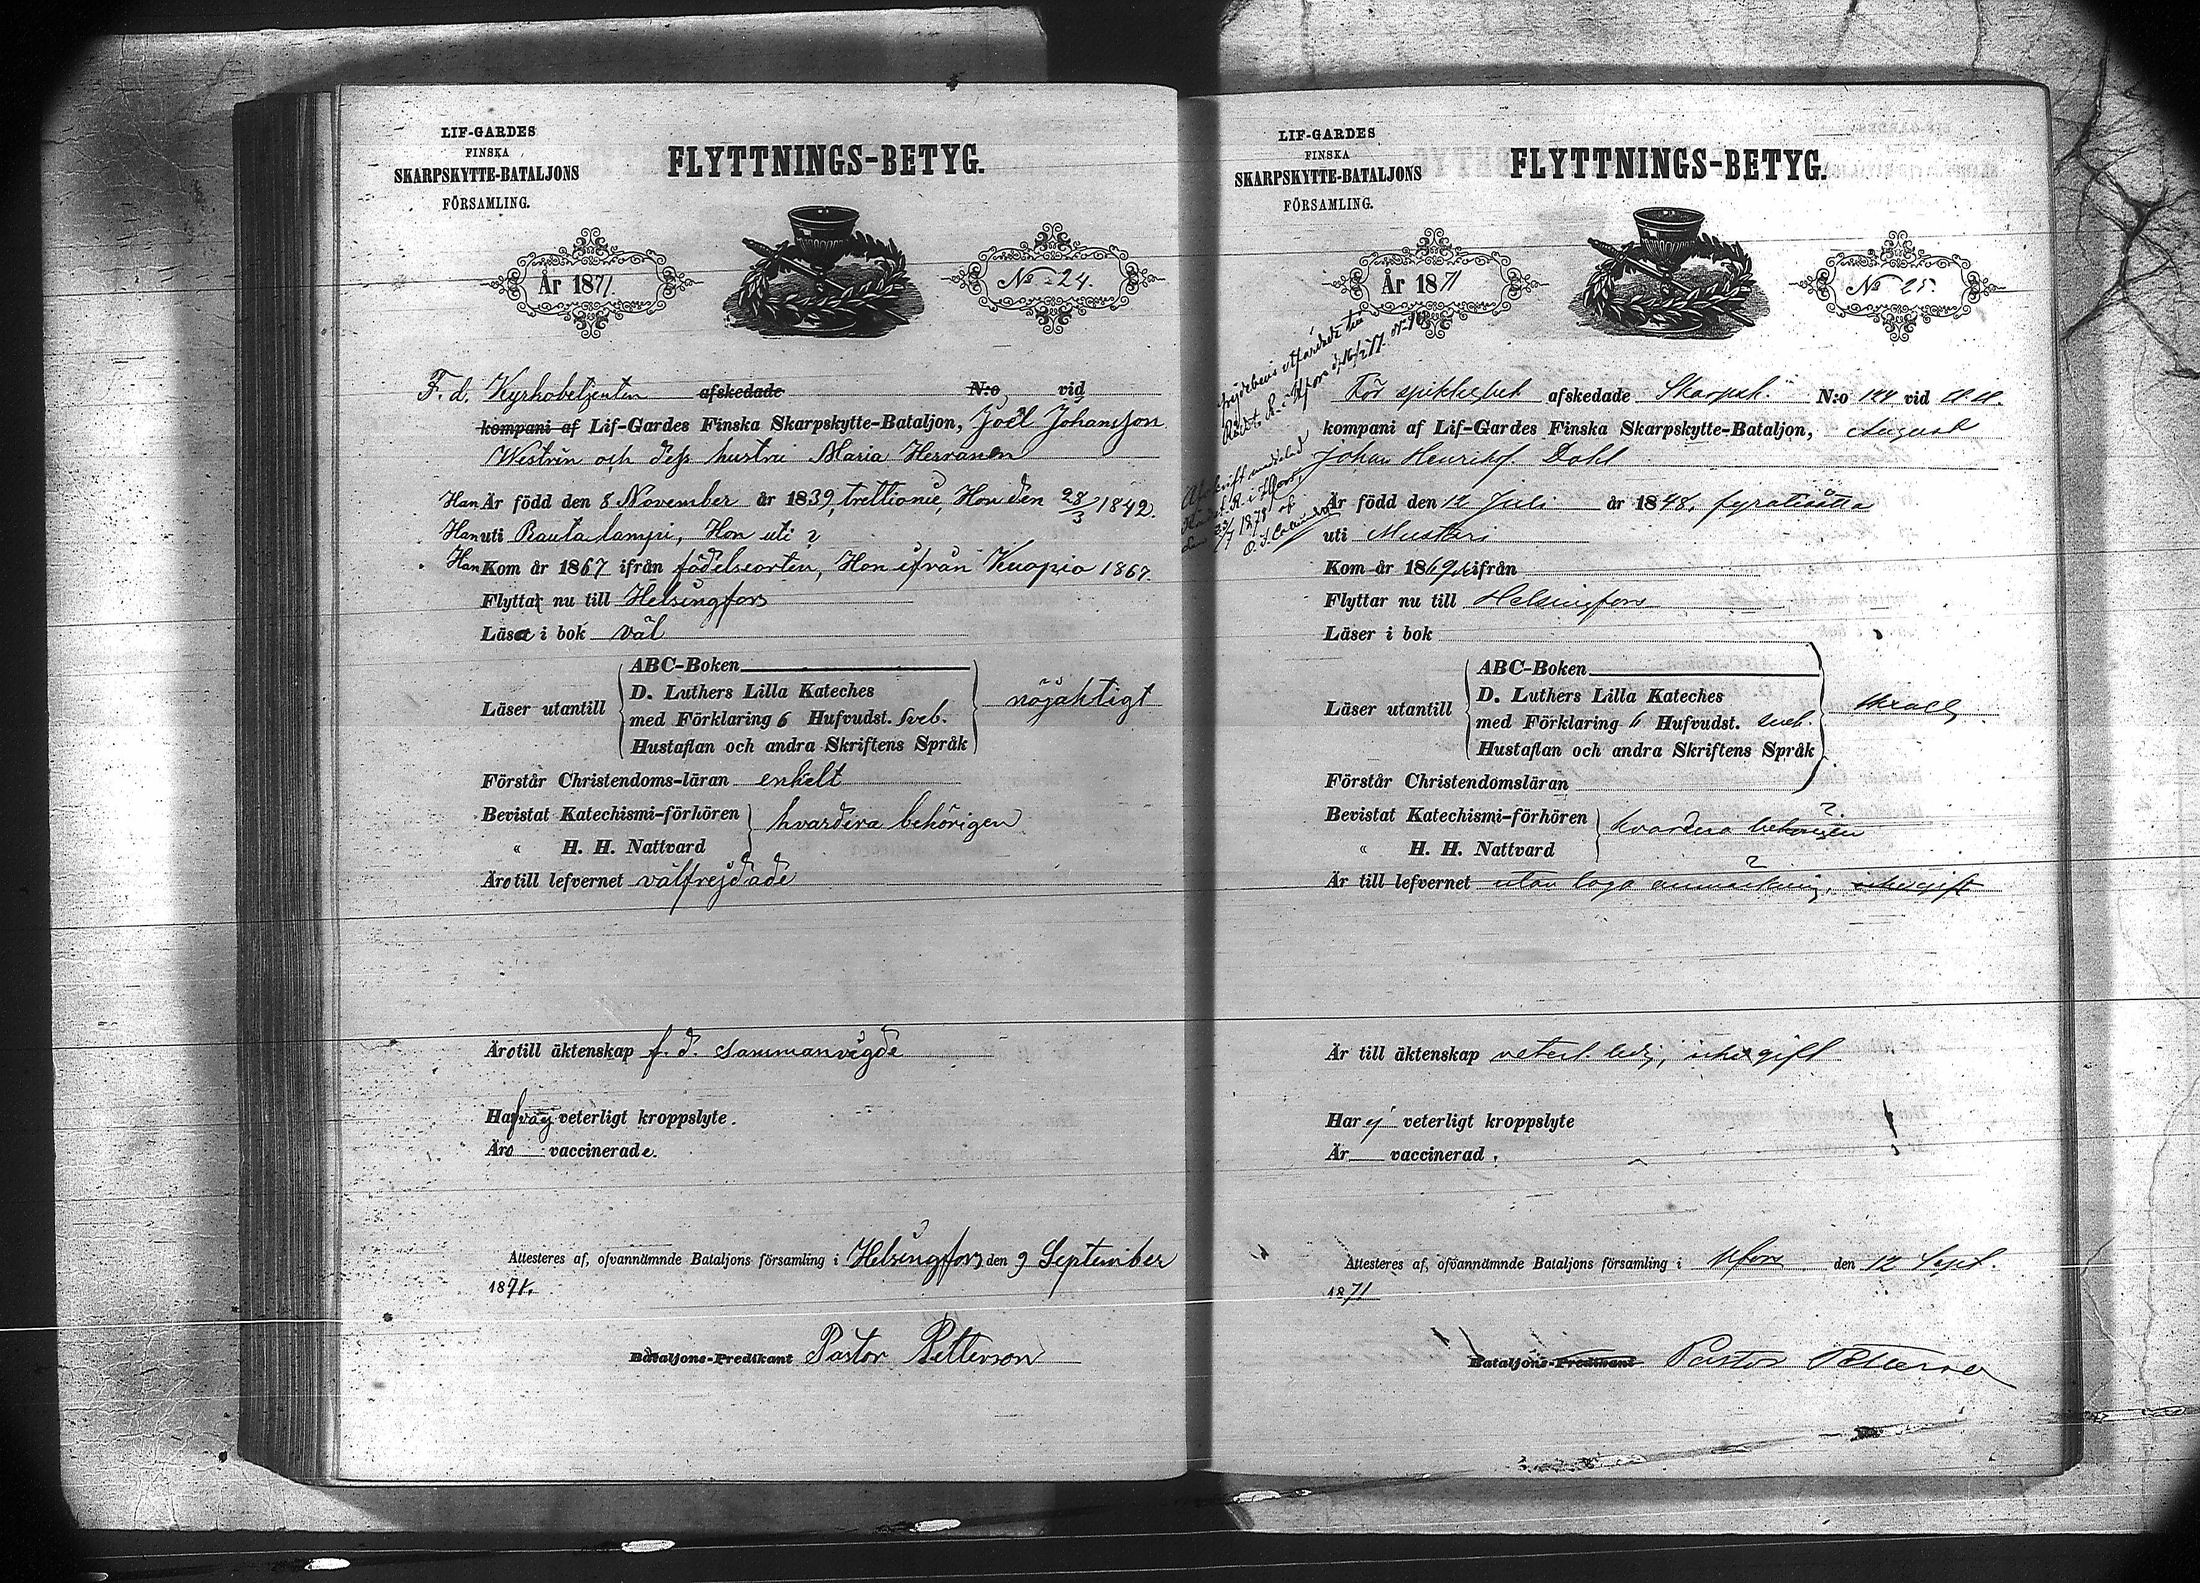 LIF-GARDES
FINSKA
SKARPSKYTTE-BATALJONS
FÖRSAMLING.
FLYTTNINGS-BETYG.
År 1871.
No 24.
F. d. Kyrkobetjenten afskedade N:o vid
kompani af Lif-Gardes Finska Skarpskytte-Bataljon, Joël Johansson
Westrén och dess hustru Maria Herranen
Han Är född den 8 November år 1839, trettionie, Hon den 28/3 1842.
Han uti Rautalampi, Hon uti
Han Kom år 1867 ifrån födelseorten, Hon ifrån Kuopio 1867.
Flytta nu till Helsingfors
Läsa i bok väl
Läser utantill
ABC-Boken
D. Luthers Lilla Kateches
med Förklaring 6 Hufvudst. sveb.
Hustaflan och andra Skriftens Språk
nöjaktigt
Förstår Christendoms-läran enkelt
Bevistat Katechismi-förhören
" H. H. Nattvard
hvardera behörigen
Äro till lefvernet välfrejdade
Äro till äktenskap f. d. sammanvigde
Hafva ej veterligt kroppslyte.
Äro vaccinerade.
Attesteres af, ofvannämnde Bataljons församling i Helsingfors den 9 September
1871.
Bataljons-Predikant Pastor Petterson
LIF-GARDES
FINSKA
SKARPSKYTTE-BATALJONS
FÖRSAMLING.
FLYTTNINGS-BETYG.
År 1871
No 25
För afskedade Skarpsk. N:o 124 vid
kompani af Lif-Gardes Finska Skarpskytte-Bataljon, August
Johan Henriksf. Dahl
Är född den 12 Juli år 1848, fyratioåtta
uti Mustari
Kom år 1869 ifrån
Flyttar nu till Helsingfors
Läser i bok
Läser utantill
ABC-Boken
D. Luthers Lilla Kateches
med Förklaring 6 Hufvudst. sveb.
Hustaflan och andra Skriftens Språk
Förstår Christendomsläran
Bevistat Katechismi-förhören
" H. H. Nattvard
hvardera behörigen
Är till lefvernet utan laga anmärkning,
Är till äktenskap veterl. ledig, icke gift
Har ej veterligt kroppslyte
Är vaccinerad.
Attesteres af, ofvannämnde Bataljons församling i Hfors den 12 Sept.
1871
Bataljons-Predikant Pastor Petterson